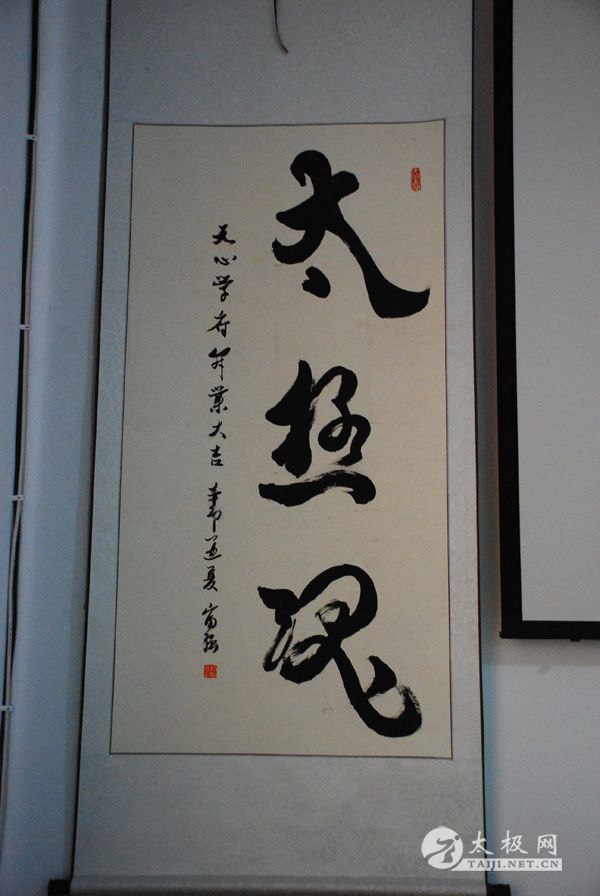 太极魂
天心学府开业大吉 夏
太极网
TAIJI.NET.CN